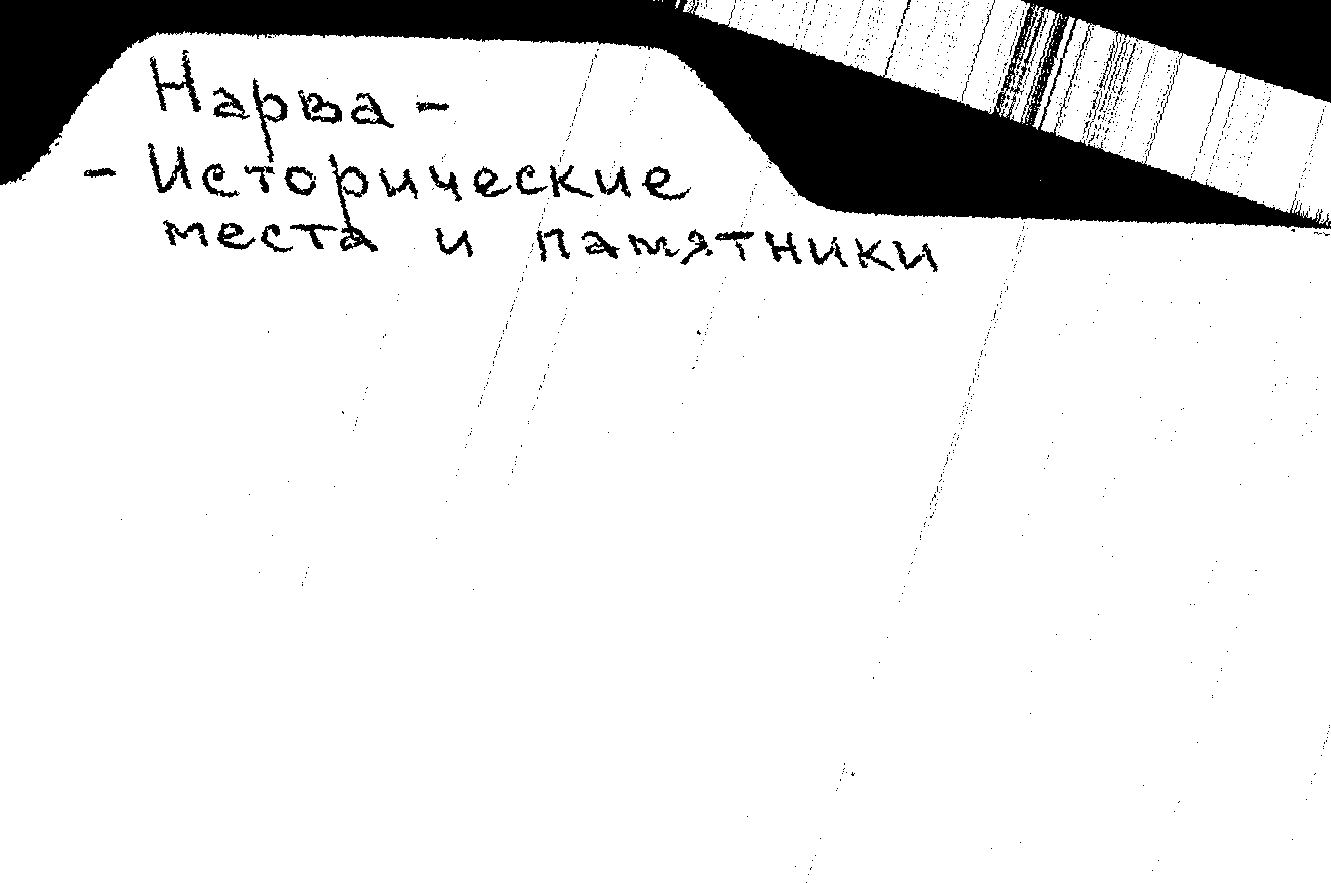 Нарва -
- Исторические
места и памятники